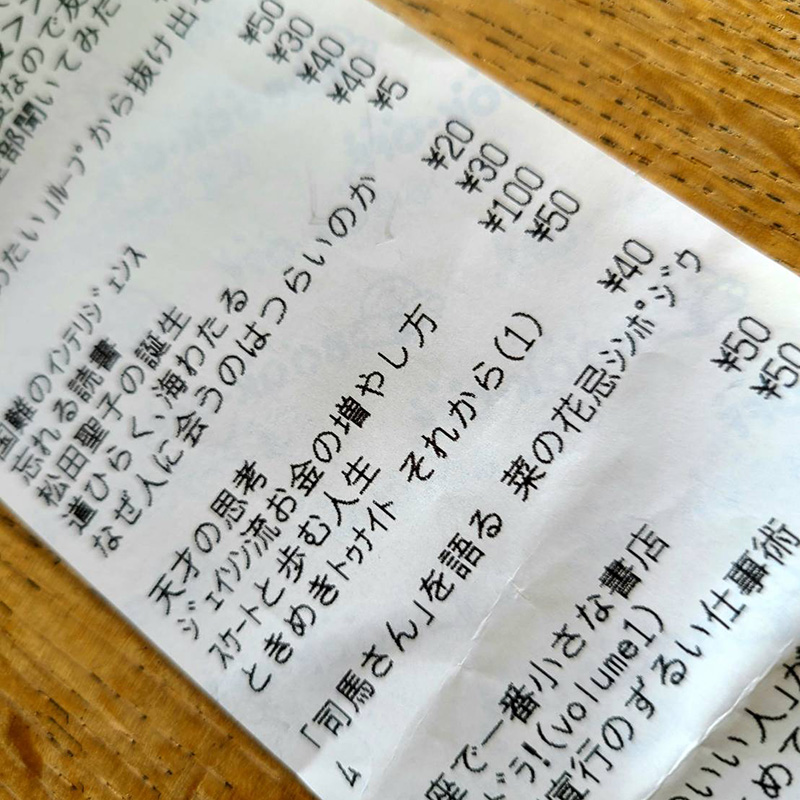 なので友
全部聞いてみた
たい」ループから抜け出
国難のインテリジェンス ¥50
忘れる読書 ¥30
松田聖子の誕生 ¥40
道ひらく、海わたる ¥40
なぜ人に会うのはつらいのか ¥5
天才の思考 ¥20
ジェイソン流お金の増やし方 ¥30
スケートと歩む人生 ¥100
ときめきトゥナイト それから(1) ¥50
「司馬さん」を語る 菜の花忌シンポジウ ¥40
ム
座で一番小さな書店 ¥50
ドラ!(volume1) ¥50
宣行のずるい仕事術
いい人」が
めて